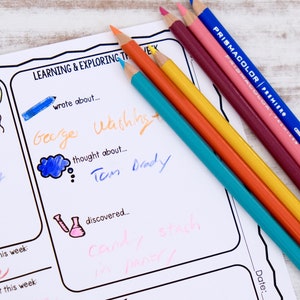 LEARNING & EXPLORING TH
wrote about...
George Washingt
thought about...
Tom Brady
discovered...
candy stash
in pantry
PRISMACOLOR PREMIER
this week
this week:
Date: